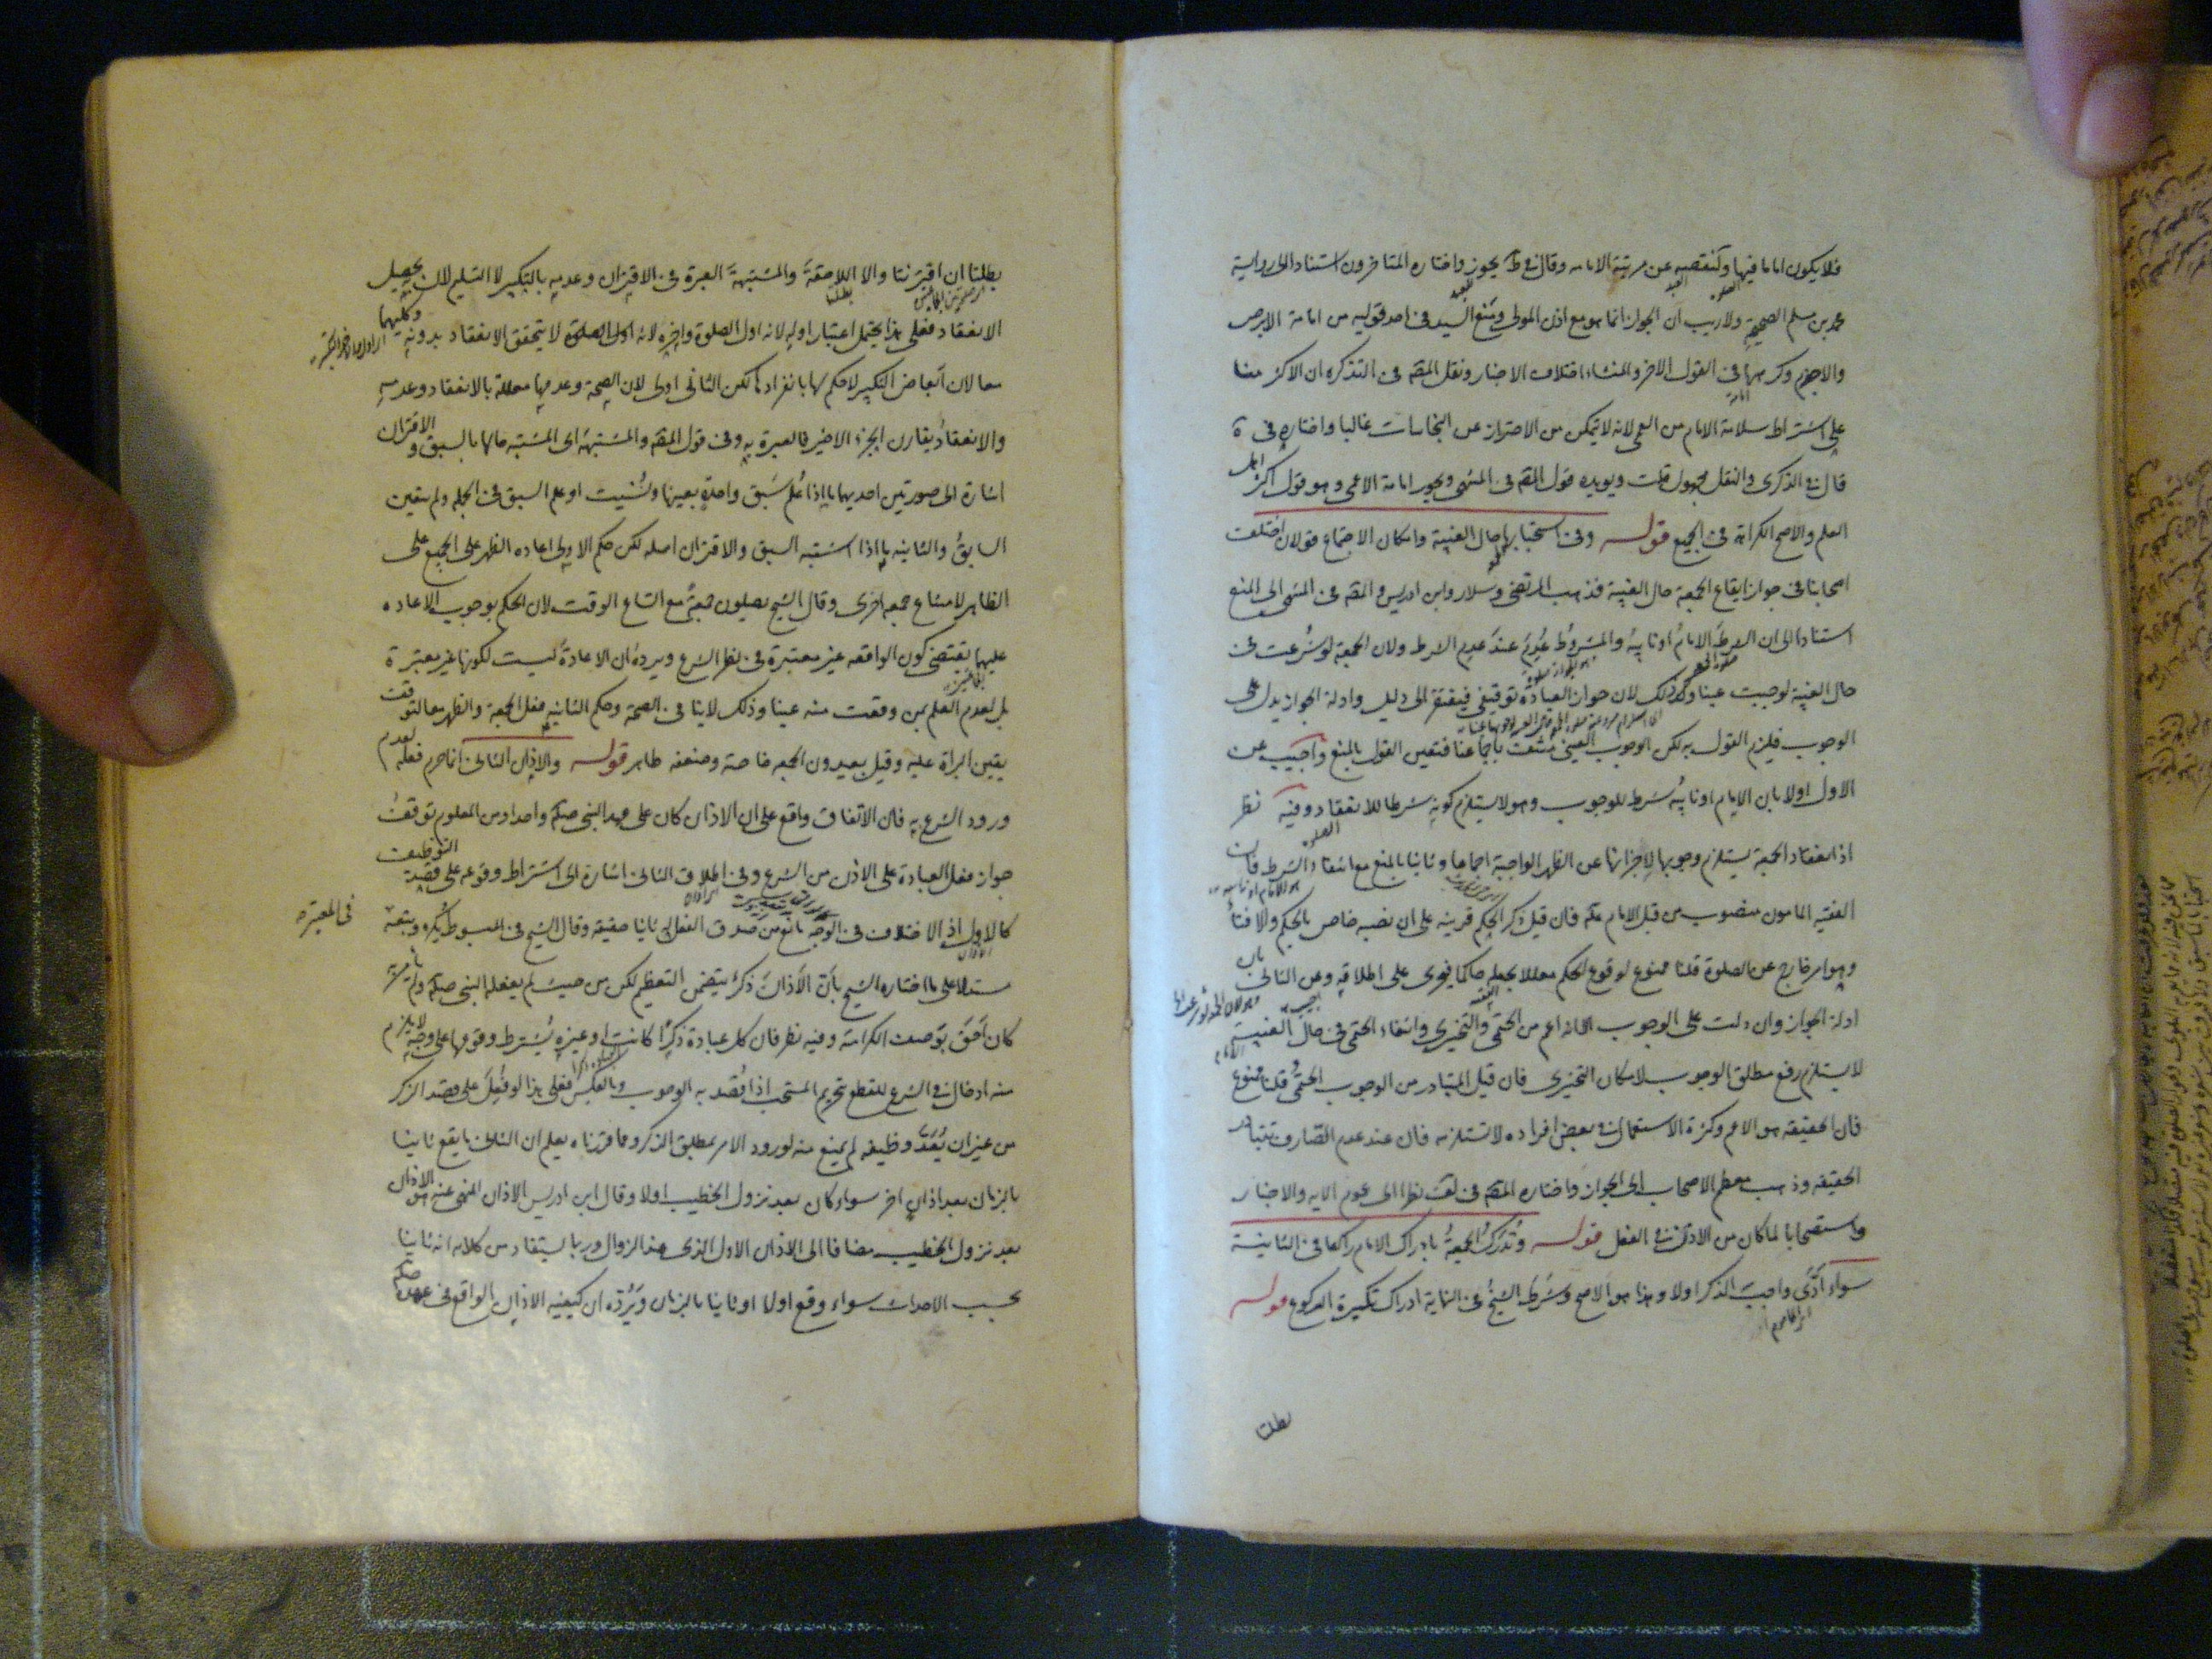 فلا يكون اماما فيها ولنقصه عن مرتبة الامامه وقال في ط يجوز واختاره المتاخرون استنادا الى رواية
محمد بن مسلم الصحيحة ولا ريب ان الجواز انما هو مع اذن المولى ومنع السيد في احد قوليه من امامة الابرص
والاجذم وكرههما في القول الاخر والمنشاء اختلاف الاخبار ونقل المصنف في التذكره ان الاكثر منا
على اشتراط سلامة الامام من العمى لانه لا يتمكن من الاحتراز عن النجاسات غالبا واختاره في
قال في الذكرى والنقل مجهول قلت ويؤيده قول المصنف في المنتهى ويجوز امامة الاعمى وهو قول اكثر اهل
العلم والاصح الكراهة في الجميع قوله وفى استحبابها حال الغيبة وامكان الاجتماع قولان اختلفت
اصحابنا في جواز ايقاع الجمعة حال الغيبة فذهب المرتضى وسلار وابن ادريس والمصنف في المنتهى الى المنع
استنادا الى ان الشرط الامام او نايبه والمشروط عدم عند عدم الشرط ولان الجمعة لو شرعت في
حال الغيبة لوجبت عينا وكذلك لان جواز العبادة توقيفي فيفتقر الى دليل وادلة الجواز يدل على
الوجوب فيلزم القول به لكن الوجوب العيني منتف باجماعنا فتعين القول بالمنع واجيب عن
الاول اولا بان الامام او نايبه شرط للوجوب وهو لا يستلزم كونه شرطا للانعقاد وفيه نظر
اذ انعقاد الجمعة يستلزم وجوبها لاجزائها عن الظهر الواجبة اجماعا وثانيا بالمنع مع انتفاء الشرط فان
الفقيه المامون منصوب من قبل الامام فان قيل ذكر الحكم قرينة على ان نصبه خاص بالحكم والافتاء
وهو امر خارج عن الصلوة قلنا ممنوع لوقوع الحكم معللا بجعله حاكما فيجرى على اطلاقه وعن الثاني بان
ادلة الجواز وان دلت على الوجوب الا انه اعم من الحتمى والتخييرى وانتفاء الحتمى في حال الغيبة
لا يستلزم رفع مطلق الوجوب لامكان التخييرى فان قيل المتبادر من الوجوب الحتمى قلنا ممنوع
فان الحقيقه هو الاعم وكثرة الاستعمال في بعض افراده لا تستلزمه فان عند عدم الصارف تتبادر
الحقيقه وذهب معظم الاصحاب الى الجواز واختاره المصنف في لف نظرا الى عموم الايه والاخبار
واستصحابا لما كان من الاذن في الفعل قوله وتدرك الجمعة بادراك الامام راكعا في الثانية
سواء ادى واجب الذكر اولا وهذا هو الاصح وشرط الشيخ في النهاية ادراك تكبيرة الركوع قوله
بطلتا
بطلتا ان اقترنتا والا اللاحقة والمشتبهة العبرة في الاقتران وعدمه بالتكبير لا التسليم لان به يحصل
الانعقاد فعلى هذا يحتمل اعتبار اوله لانه اول الصلوة واخره لانه لا يتحقق الانعقاد بدونه وكليهما
معا لان ابعاض التكبير لا حكم لها بانفرادها لكن الثاني اولى لان الصحة وعدمها معللة بالانعقاد وعدمه
والانعقاد يقارن الجزء الاخير فالعبرة به وفى قول المصنف والمشتبهة اى المشتبه حالها بالسبق والاقتران
اشارة الى صورتين احديهما ما اذا علم سبق واحدة بعينها ونسيت او علم السبق في الجمله ولم يتعين
السابق والثانيه ما اذا اشتبه السبق والاقتران اصله لكن حكم الاولى اعاده الظهر على الجميع على
الظاهر لامتناع جمعه اخرى وقال الشيخ يصلون جمعة مع اتساع الوقت لان الحكم بوجوب الاعاده
عليهما يقتضى كون الواقعه غير معتبرة في نظر الشرع ويرده ان الاعادة ليست لكونها غير معتبرة
بل لعدم العلم بمن وقعت منه عينا وذلك لا ينافي الصحة وحكم الثانية فعل الجمعة والظهر معا لتوقف
يقين البراءة عليه وقيل يعيدون الجمعه خاصة وضعفه ظاهر قوله والاذان الثاني انما حرم فعله لعدم
ورود الشرع به فان الاتفاق واقع على ان الاذان كان على عهد النبي صلم واحدا ومن المعلوم توقف
جواز فعل العبادة على الاذن من الشرع وفي اطلاق الثاني اشارة الى اشتراط وقوعه على قصد التوظيف
كالاول اذ الاختلاف في الوجه مانع من صدق الفعل ثانيا حقيقه وقال الشيخ في المبسوط يكره وتبعه
فى المعتبره
مستدلا على ما اختاره الشيخ بان الاذان ذكر يتضمن التعظيم لكن من حيث لم يفعله النبى صلم ولم يامر به
كان احق بوصف الكراهة وفيه نظر فان كل عبادة ذكرا كانت او غيره يشترط وقوعها على وجه لا يلزم
منه ادخال في الشرع للقطع بتحريم المستحب اذا قصد به الوجوب وبالعكس فعلى هذا لو فعل على قصد الذكر
من غير ان يعد وظيفه لم يمنع منه لورود الامر بمطلق الذكر ومما قررناه يعلم ان الثاني ما يقع ثانيا
بالزمان بعد اذان اخر سواء كان بعد نزول الخطيب اولا وقال ابن ادريس الاذان المنهى عنه هو الاذان
بعد نزول الخطيب مضافا الى الاذان الاول الذى عند الزوال وربما يستفاد من كلامه انه ثانيا
بحسب الاحداث سواء وقع اولا او ثانيا بالزمان ويرده ان كيفيه الاذان الواقع في عهده صلم